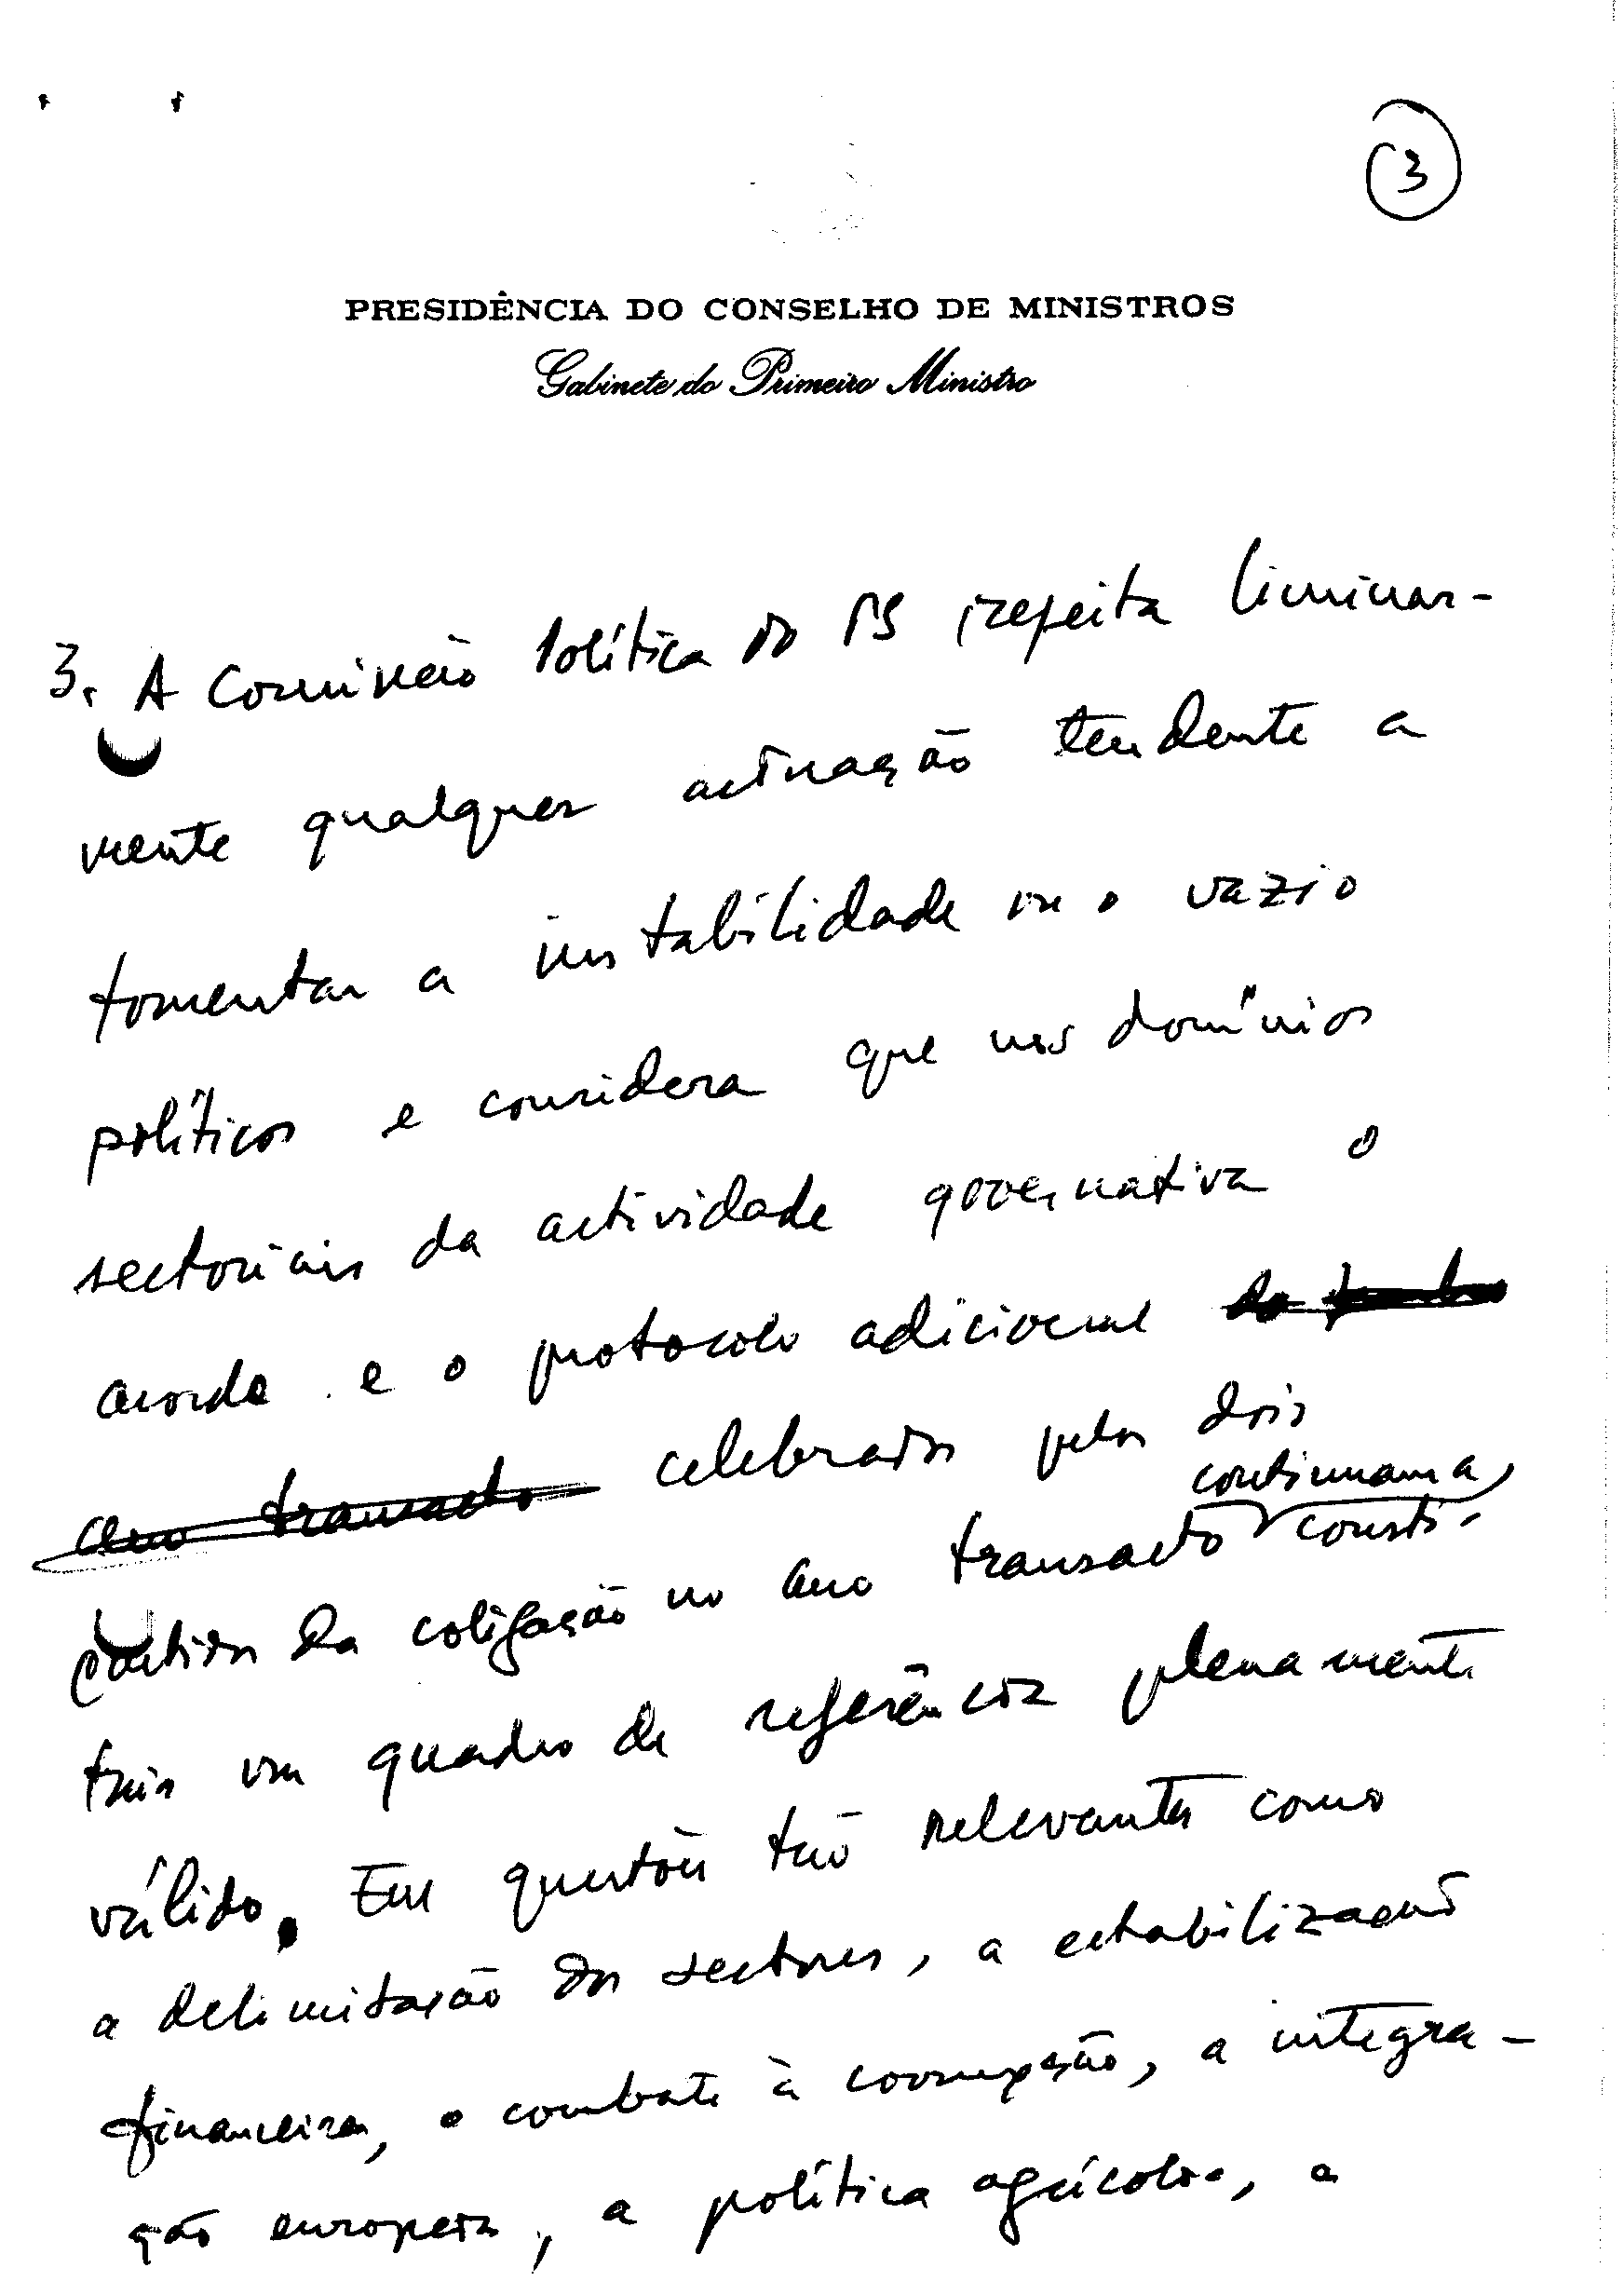 3
PRESIDÊNCIA DO CONSELHO DE MINISTROS
Gabinete do Primeiro Ministro
3. A Comissão Política do PS rejeita liminar-
mente qualquer actuação tendente a
fomentar a instabilidade ou o vazio
políticos e considera que nos domínios
sectoriais da actividade governativa o
acordo e o protocolo adicional do
ano transacto celebrados pelos dois
continuam a
partidos da coligação no ano transacto consti-
tuir um quadro de referência plenamente
válido. Em questões tão relevantes como
a delimitação dos sectores, a estabilização
financeira, o combate à corrupção, a integra-
ção europeia, a política agrícola, a